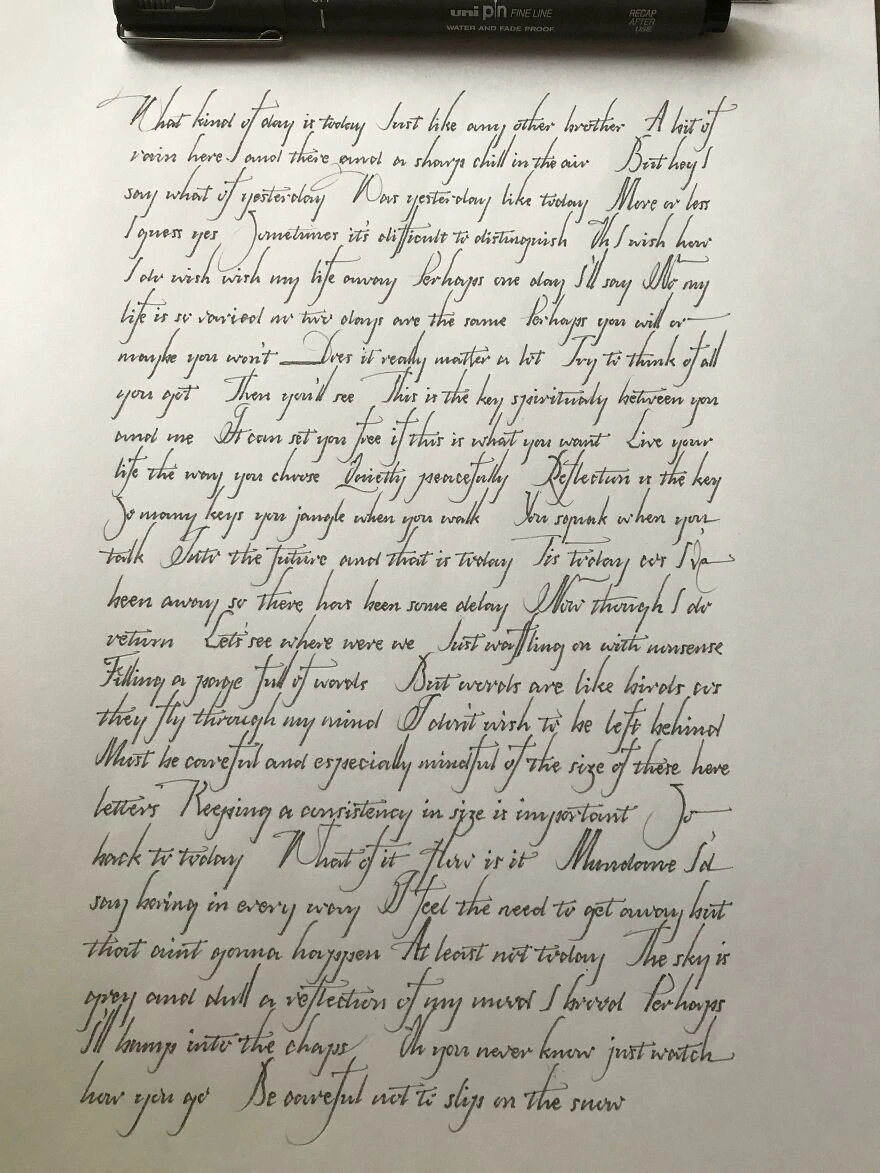 uni pin FINE LINE
WATER AND FADE PROOF
RECAP
AFTER
USE
What kind of day is today Just like any other brother A bit of
rain here I and there and a sharp chill in the air But hey I
say what of yesterday Was yesterday like today More or less
I guess yes Sometimes it's difficult to distinguish Oh I wish how
I do wish wish my life away Perhaps one day I'll say No my
life is so varied no two days are the same Perhaps you will or
maybe you won't Does it really matter a lot Try to think of all
you got Then you'll see This is the key spiritualy between you
and me It can set you free if this is what you want Live your
life the way you choose Quietly peacefully Reflection is the key
So many keys you jangle when you walk You squak when you
talk Into the future and that is today Tis today cos I've
been away so there has been some delay Now though I do
return Let's see where were we Just waffling on with nonsense
Filling a page full of words But words are like birds cos
they fly through my mind I don't wish to be left behind
Must be careful and especially mindful of the size of these here
letters Keeping a consistency in size is important So
back to today What of it How is it Mundane I'd
say boring in every way I feel the need to get away but
that aint gonna happen At least not today The sky is
grey and dull a reflection of my mood I brood Perhaps
I'll bump into the chaps Oh you never know just watch
how you go Be careful not to slip on the snow